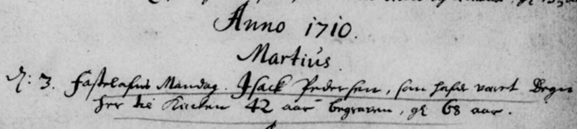 Anno 1710.
Martius.
d: 3. Fastelafns Mandag. Isack Pedersen, som hafde varet Degn
her til Kircken 42 aar begraven, gl 68 aar.